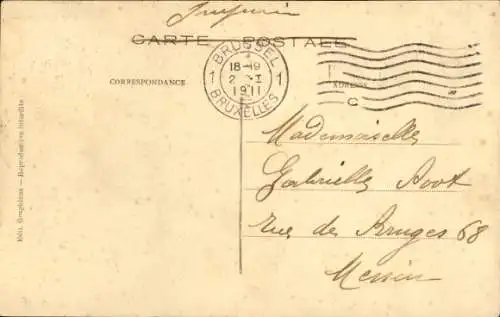 Imprimé
CARTE POSTALE
BRUSSEL
18-19
1 2 I 1
1911
BRUXELLES
CORRESPONDANCE
ADRESSE
C
Mademoiselle
Gabrielle
rue des Bruges 68
Menin
Edit. Graphicus — Reproduction interdite